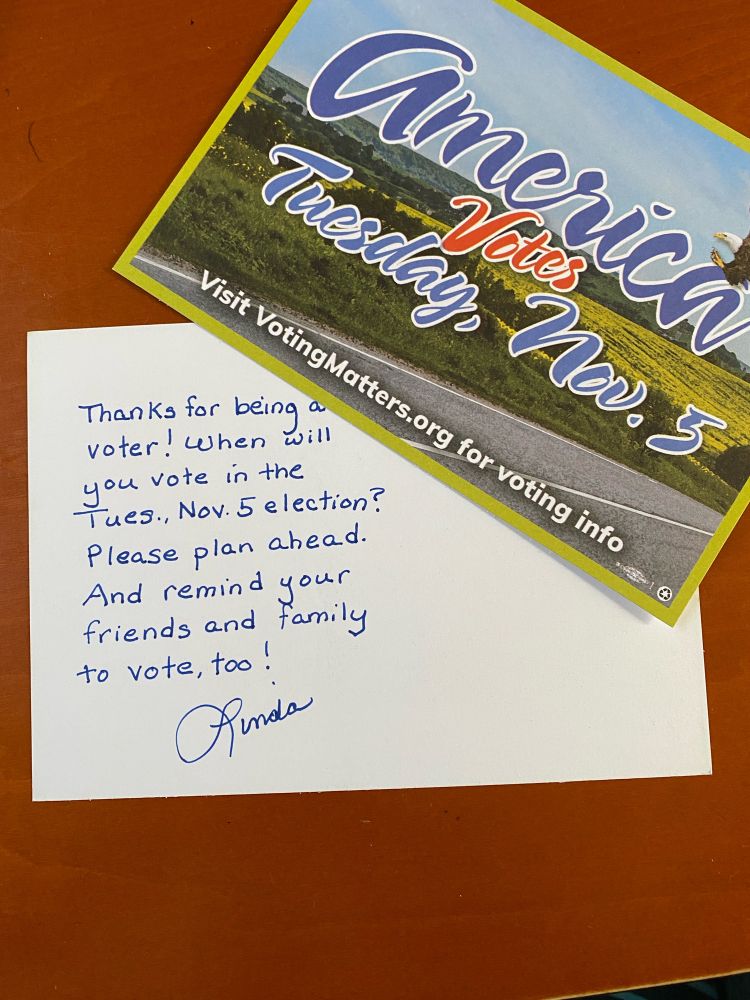 America
Votes
Tuesday, Nov. 5
Visit VotingMatters.org for voting info
Thanks for being a
voter! When will
you vote in the
Tues., Nov. 5 election?
Please plan ahead.
And remind your
friends and family
to vote, too!
Linda